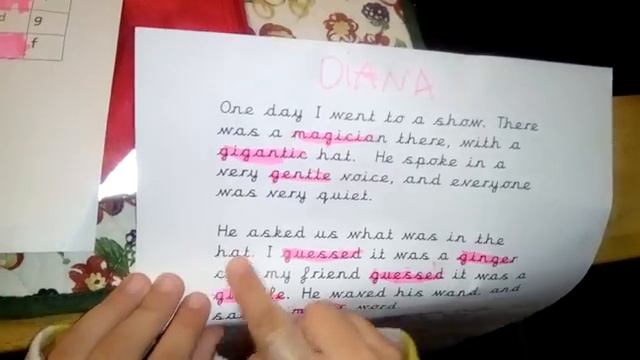 d g
f
DIANA
One day I went to a show. There
was a magician there, with a
gigantic hat. He spoke in a
very gentle voice, and everyone
was very quiet.
He asked us what was in the
hat. I guessed it was a ginger
my friend guessed it was a
He waved his wand, and
word